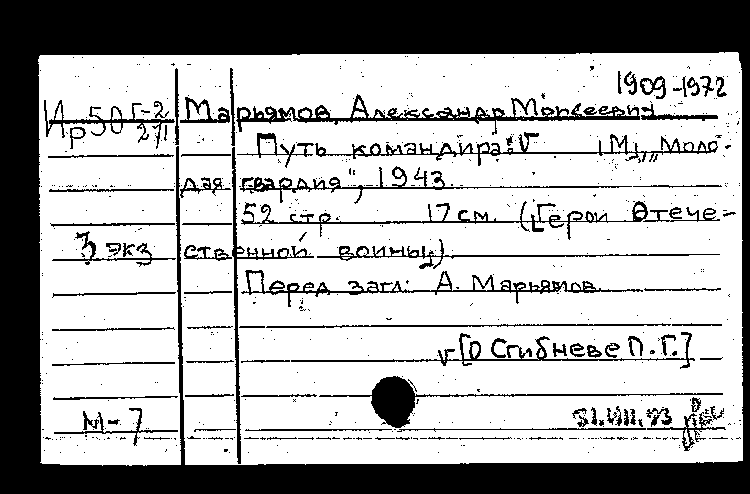 1909-1972
Ир50 Г-2
271
Марьямов, Александр Моисеевич
Путь командира: V [М], „Моло-
дая гвардия", 1943.
52 стр. 17 см. ([Герои Отече-
3 экз ственной войны]).
Перед загл: А. Марьямов
V [О Сгибневе П. Г.]
М-7 31.VIII.73